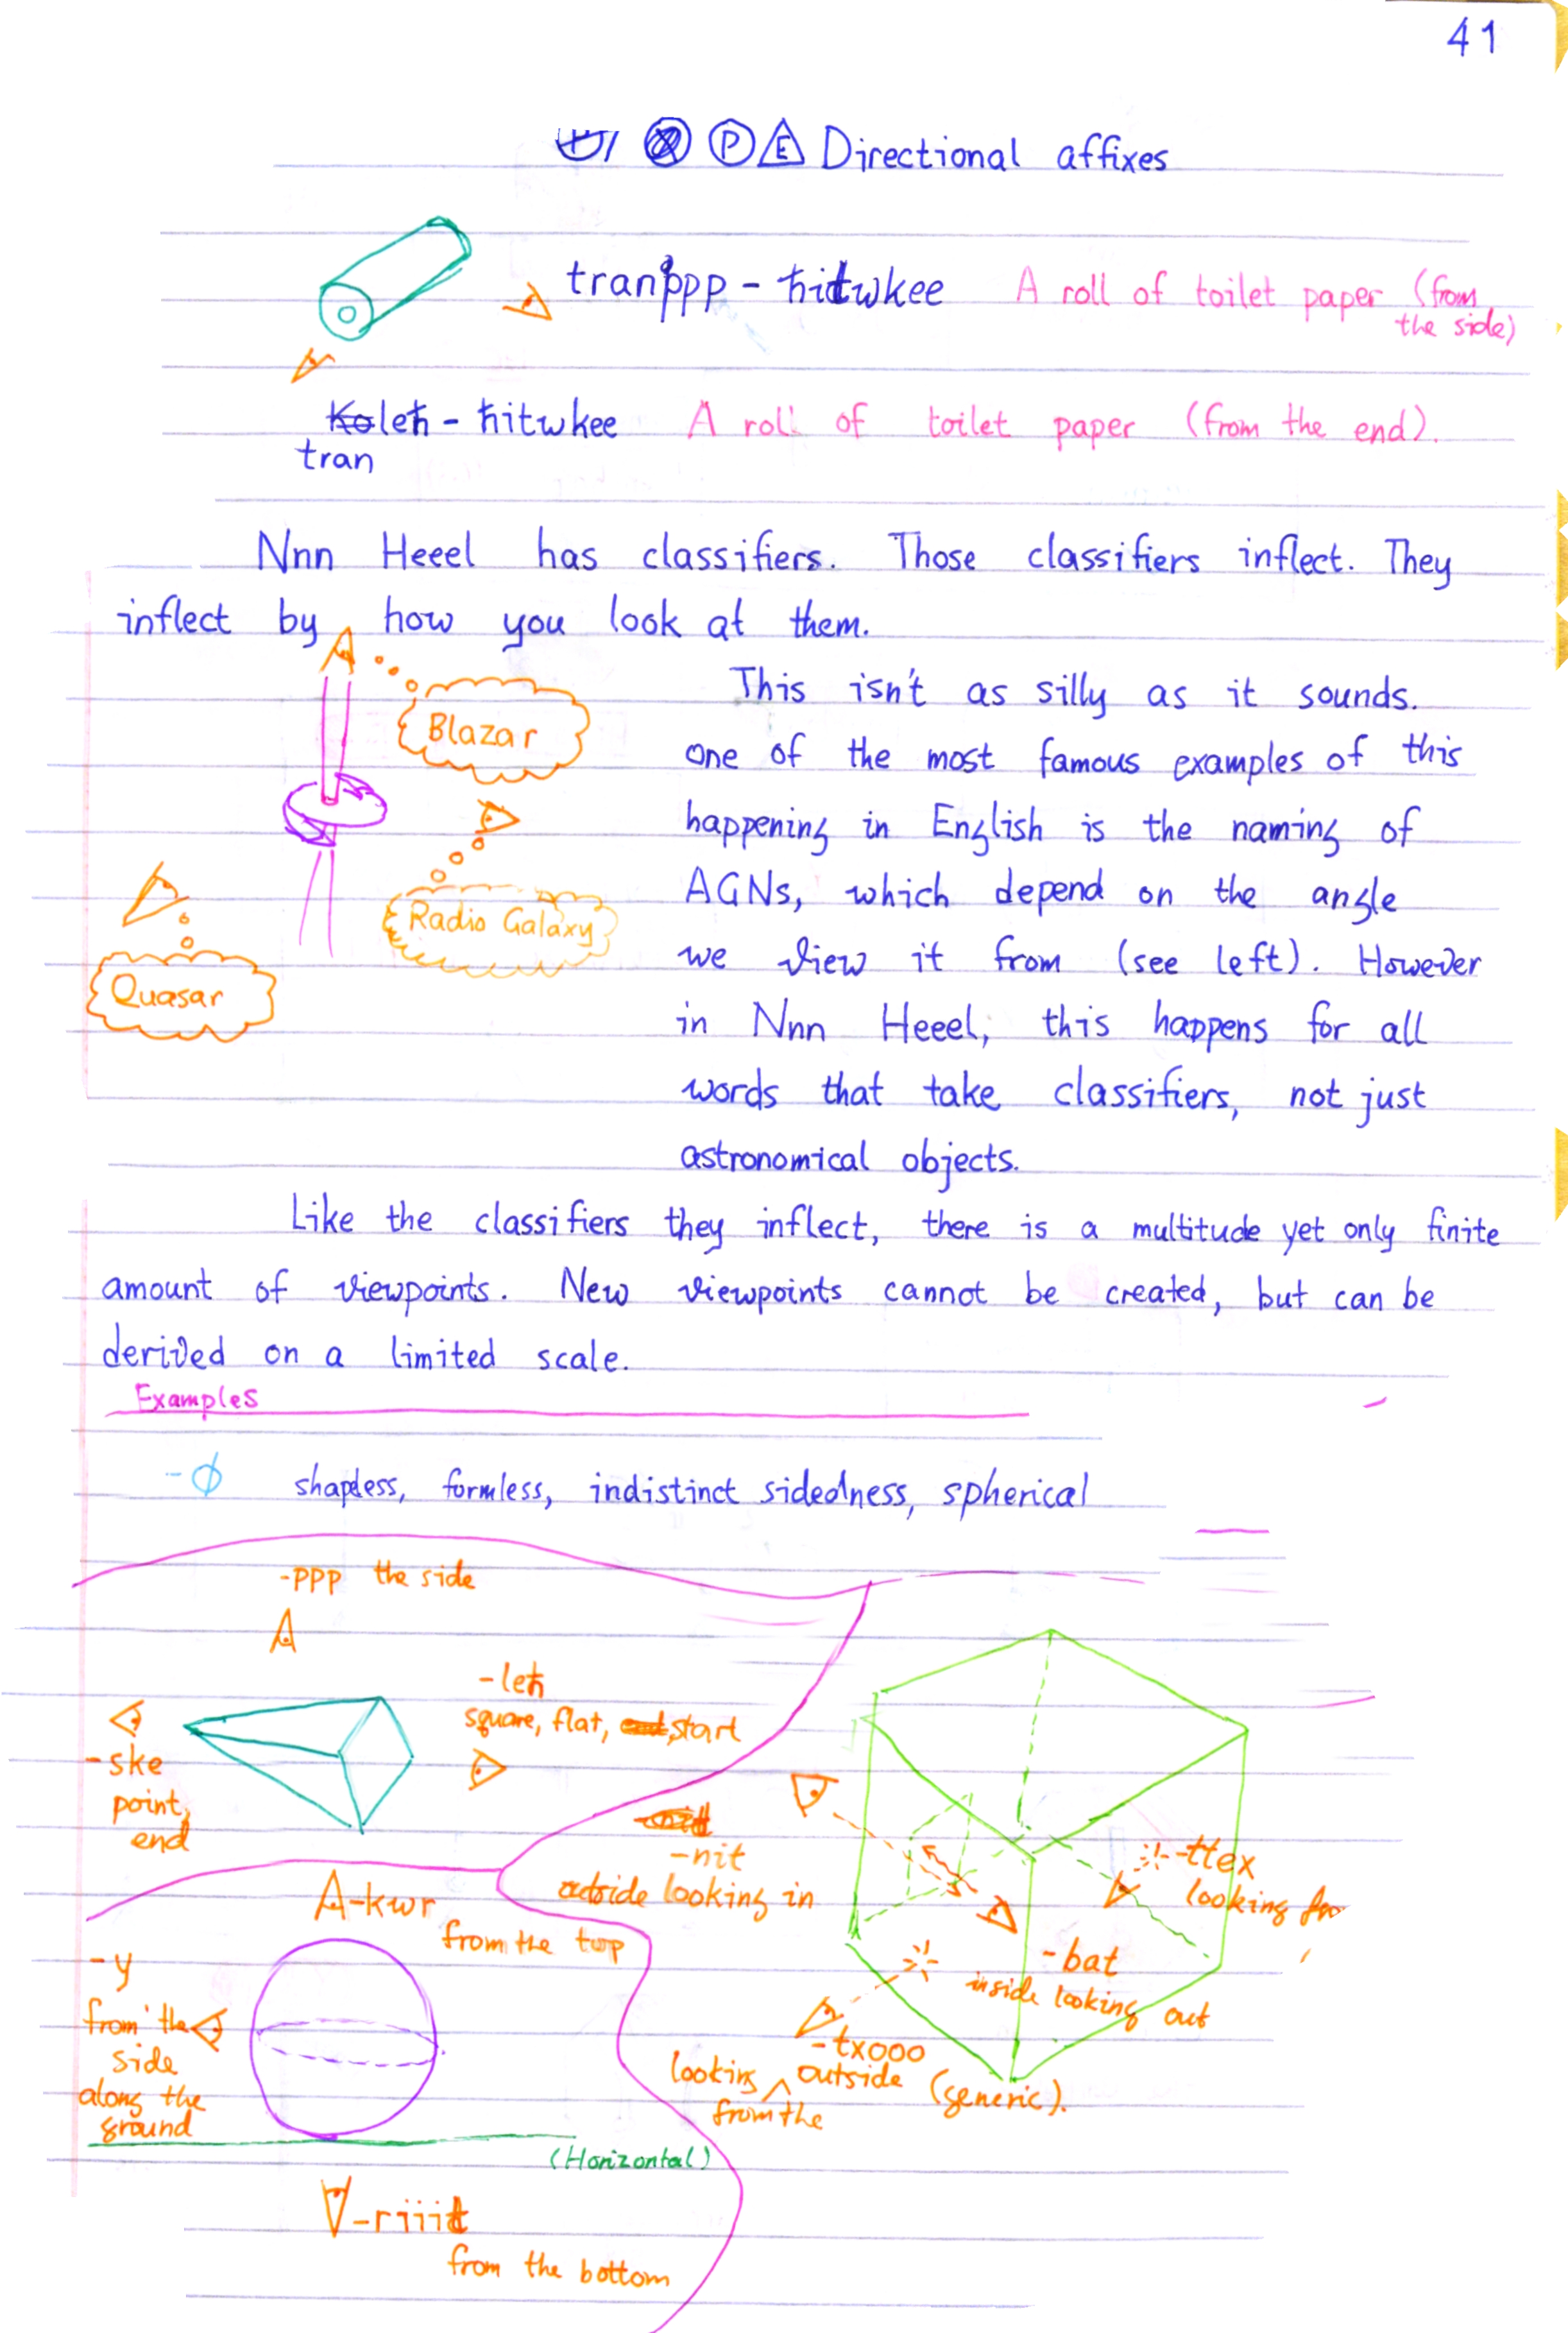 41
P E Directional affixes
tranppp - ħitwkee A roll of toilet paper (from
the side)
Koleħ - ħitwkee A roll of toilet paper (from the end).
tran
Nnn Heeel has classifiers. Those classifiers inflect. They
inflect by how you look at them.
Blazar
Radio Galaxy
Quasar
This isn't as silly as it sounds.
One of the most famous examples of this
happening in English is the naming of
AGNs, which depend on the angle
we view it from (see left). However
in Nnn Heeel, this happens for all
words that take classifiers, not just
astronomical objects.
Like the classifiers they inflect, there is a multitude yet only finite
amount of viewpoints. New viewpoints cannot be created, but can be
derived on a limited scale.
Examples
-∅ shapeless, formless, indistinct sidedness, spherical
-ppp the side
-leħ
square, flat, start
-ske
point,
end
-nit
outside looking in
-ttex
looking
-bat
inside looking out
-txooo
looking ^ outside (generic).
from the
-kwr
from the top
-y
from the
side
along the
ground
(Horizontal)
-riiit
from the bottom